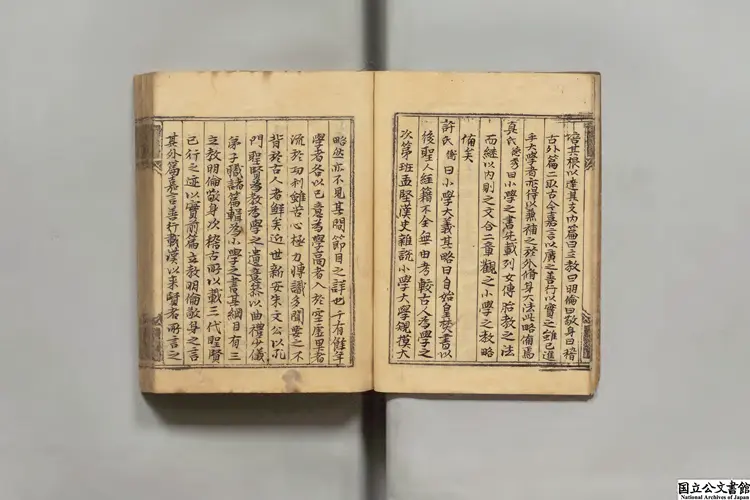 培其根以達其支內篇曰立教曰明倫曰敬身曰稽
古外篇二取古今嘉言以廣之善行以實之雖已進
乎大學者亦得以兼補之於外修身大法此略備焉
真氏德秀曰小學之書先載列女傳胎教之法
而繼以內則之文合二章觀之小學之教略
備矣
許氏衡曰小學大義其略曰自始皇焚書以
後聖人經籍不全無由考較古人為學之
次第班孟堅漢史雖說小學大學規模大
略然亦不見其間節目之詳也千有餘年
學者各以己意為學高者入於空虛卑者
流於功利雖苦心極力博識多聞要之不
背於古人者鮮矣近世新安朱文公以孔
門聖賢為教為學之遺意參以曲禮少儀
弟子職諸篇輯為小學之書其綱目有三
立教明倫敬身次稽古所以載三代聖賢
已行之迹以實前篇立教明倫敬身之言
其外篇嘉言善行載漢以來賢者所言之
国立公文書館
National Archives of Japan